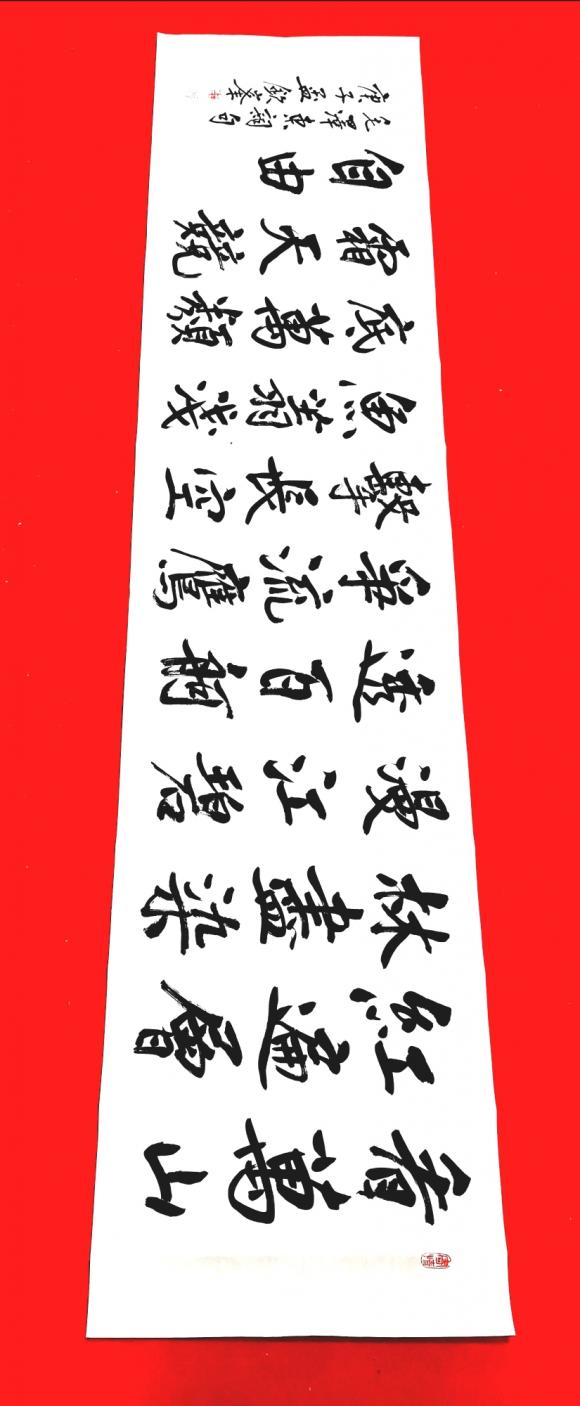 看萬山
紅遍層
林盡染
漫江碧
透百舸
爭流鷹
擊長空
魚翔淺
底萬類
霜天競
自由
毛澤東詞句
庚子孟欽峯